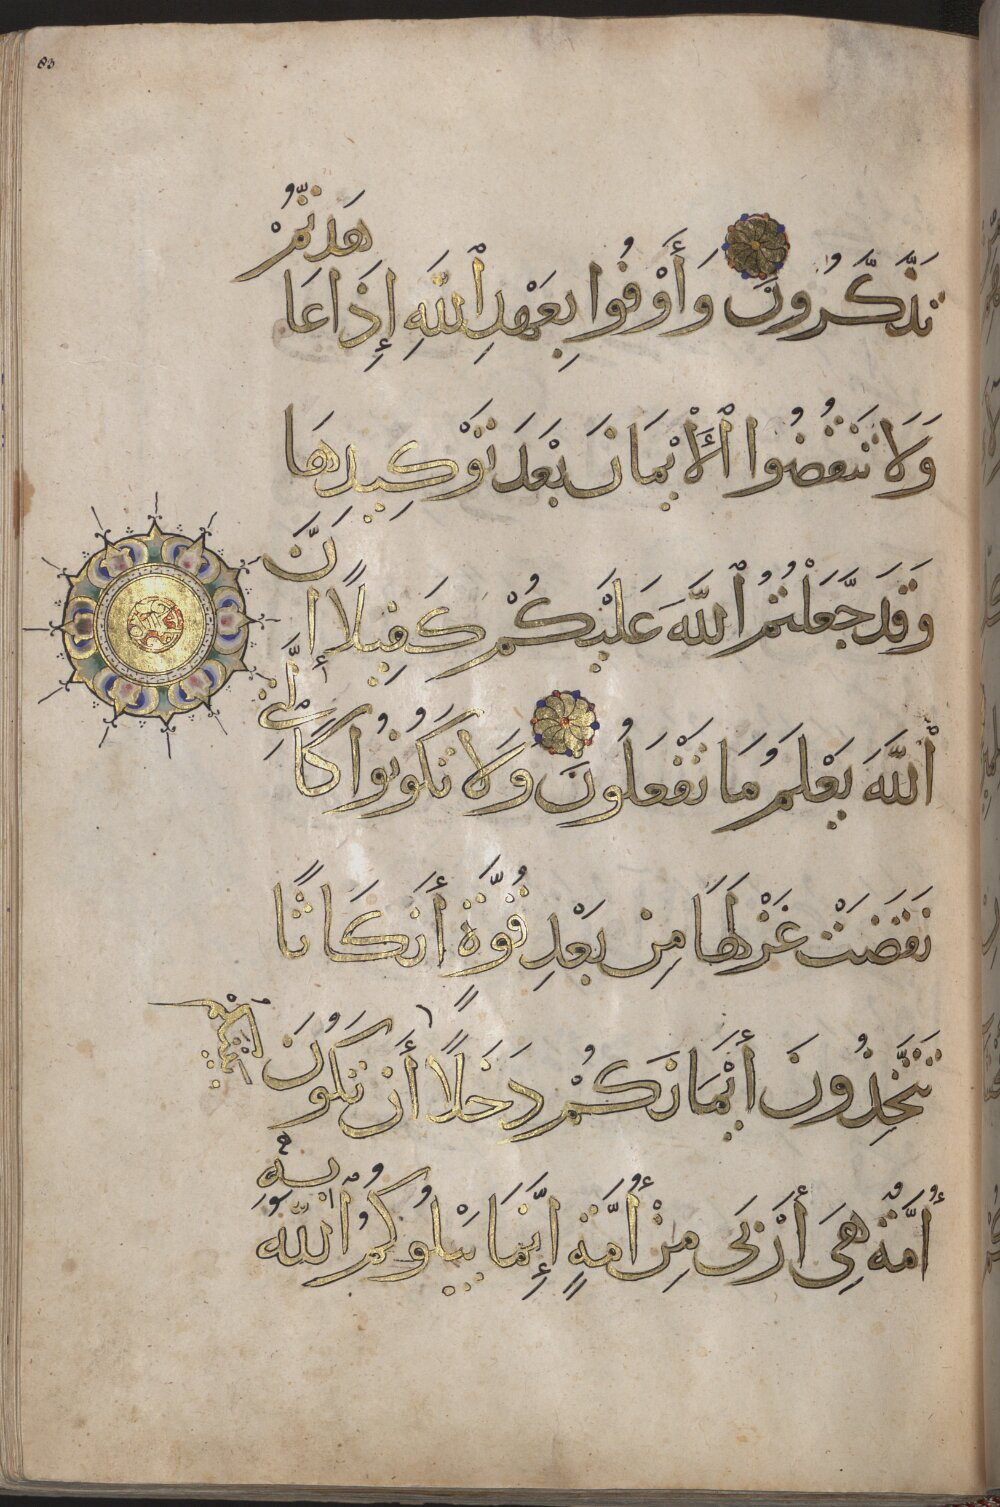 83
تَذَكَّرُونَ وَأَوْفُوا بِعَهْدِ ٱللَّهِ إِذَا عَاهَدتُّمْ
وَلَا تَنقُضُوا ٱلْأَيْمَانَ بَعْدَ تَوْكِيدِهَا
وَقَدْ جَعَلْتُمُ ٱللَّهَ عَلَيْكُمْ كَفِيلًا إِنَّ
ٱللَّهَ يَعْلَمُ مَا تَفْعَلُونَ وَلَا تَكُونُوا كَالَّتِي
نَقَضَتْ غَزْلَهَا مِن بَعْدِ قُوَّةٍ أَنكَاثًا
تَتَّخِذُونَ أَيْمَانَكُمْ دَخَلًا بَيْنَكُمْ أَن تَكُونَ
أُمَّةٌ هِيَ أَرْبَى مِنْ أُمَّةٍ إِنَّمَا يَبْلُوكُمُ ٱللَّهُ بِهِ